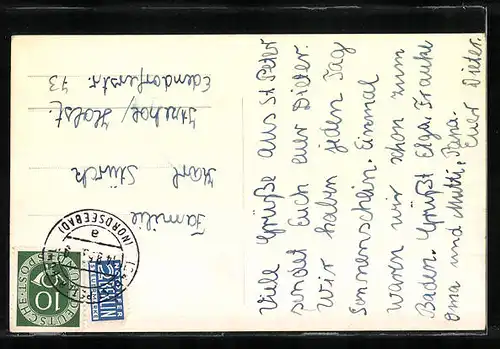 Viele Grüße aus St. Peter
sendet Euch euer Dieter.
Wir haben jeden Tag
Sonnenschein. Einmal
waren wir schon zum
Baden. Grüßt Elga, Frauke
Oma und Mutti, Papa.
Euer Dieter.
Familie
Karl Stürck
Itzehoe/Holst.
Edendorferstr. 73
(NORDSEEBAD)
a
DEUTSCHE BUNDESPOST
10
NOTOPFER
2 BERLIN
STEUERMARKE